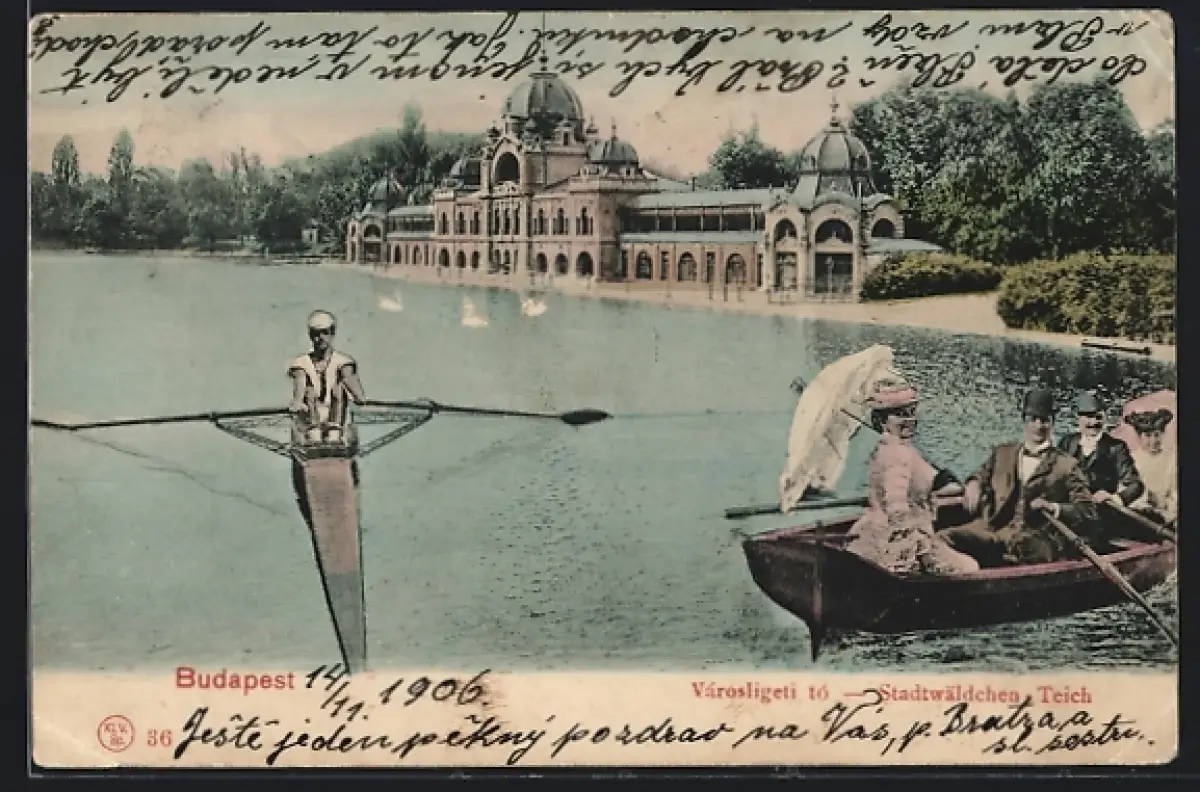 Co dělá Plzeň? Přál bych si jenom v neděli být
v Plzni vždy na chodníku. Jak to tam pořád chodí
Budapest 14/11. 1906
Városligeti tó — Stadtwäldchen Teich
36
Ještě jeden pěkný pozdrav na Vás, p. Bratza, a
sl. sestru.